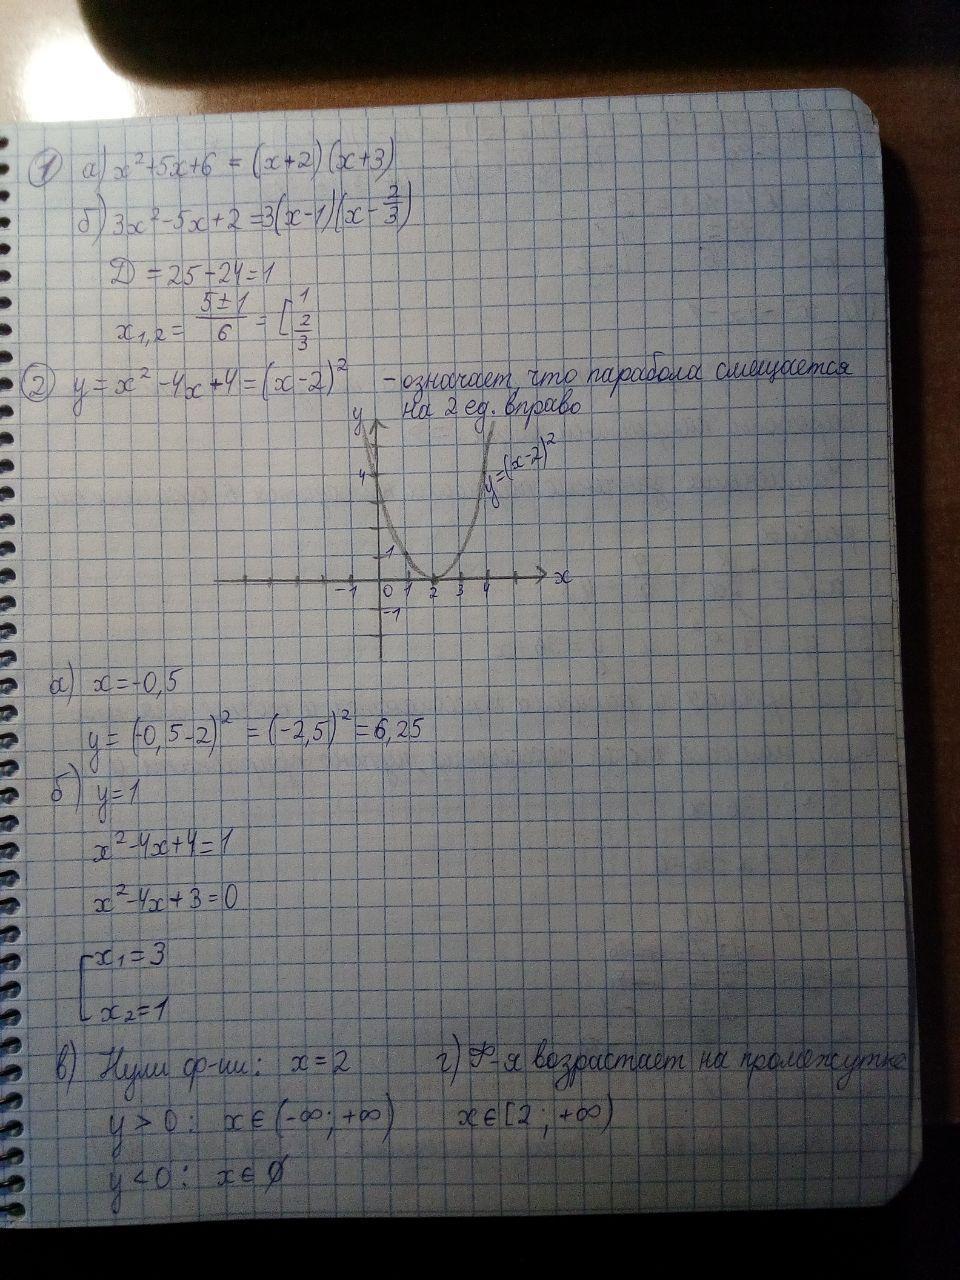 1 а) x²+5x+6 = (x+2)(x+3)
б) 3x²-5x+2=3(x-1)(x-2/3)
D = 25-24=1
x1,2 = (5±1)/6 = [1 2/3
2 y=x²-4x+4=(x-2)² - означает, что парабола смещается
на 2 ед. вправо
y
y=(x-2)²
4
1
-1 0 1 2 3 4 x
-1
а) x=-0,5
y=(-0,5-2)²=(-2,5)²=6,25
б) y=1
x²-4x+4=1
x²-4x+3=0
[x1=3
x2=1
в) Нули ф-ии: x=2 г) Ф-я возрастает на промежутке
y>0: x∈(-∞;+∞) x∈[2;+∞)
y<0: x∈∅